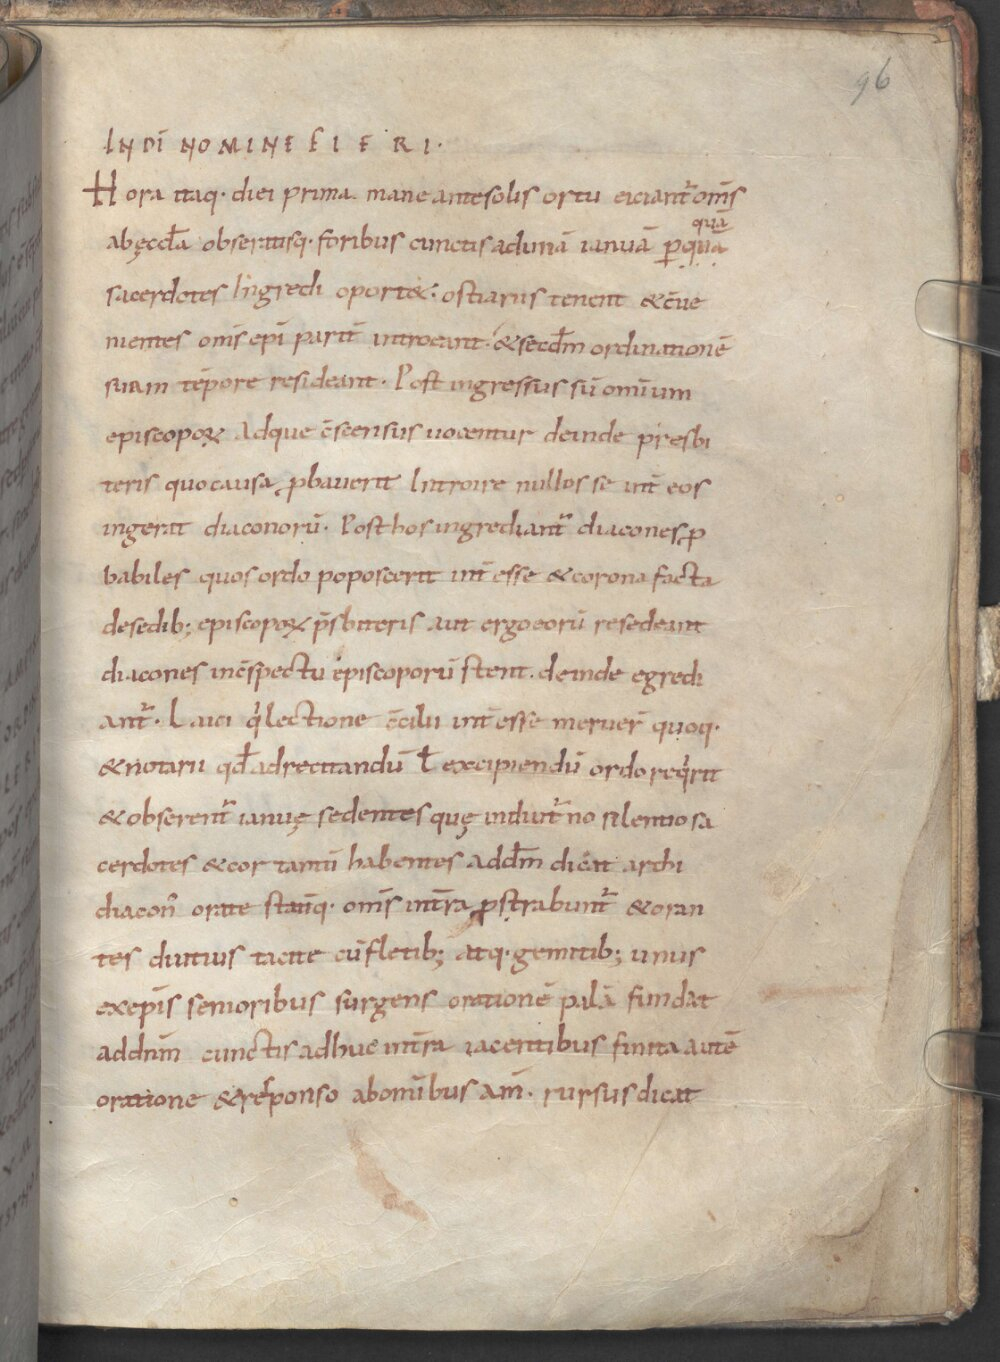 96
IN DĪ NOMINE FIERI.
Hora itaq· diei prima mane ante solis ortu eiciant᷑ om̄s
ab ęccl̄a obseratisq· foribus cunctis ad unā ianuā ꝑ quā
quā
sacerdotes Ingredi oportet: ostiariis tenent & c̄ue
nientes om̄s epī parit̄ introeant· & secd̄m ordinationē
suam tēpore resideant. Post ingressus sū omīum
episcopoꝝ adque c̄scensus uocentur deinde presbi
teris quo causa ꝓbauerit Introire nullos se int̄ eos
ingerat diaconorū. Post hos ingrediant᷑ diacones ꝓ
babiles quos ordo poposcerit int̄ esse & corona facta
de sedib; episcopoꝝ p̄sbiteris aut ergo eorū resedeant
diacones in c̄spectu episcoporū stent. deinde egredi
ant᷑. Laici q̇ lectione c̄cilii int̄ esse meruer̄ quoq·
& notarii qđ ad recitandū ł excipiendū ordo req̇rit
& obserent᷑ ianuę sedentes quę indiut᷑ no silentio sa
cerdotes & cor tantū habentes ad dm̄ dicat archi
diacon̄ orate statīq· om̄s in t̄ra ꝓstrabunt᷑ & oran
tes diutius tacite cū fletib; atq· gemitib; unus
ex ep̄is senioribus surgens orationē palā fundat
ad dn̄m cunctis adhuc in t̄ra iacentibus finita autē
oratione & responso ab omībus am̄. rursus dicat